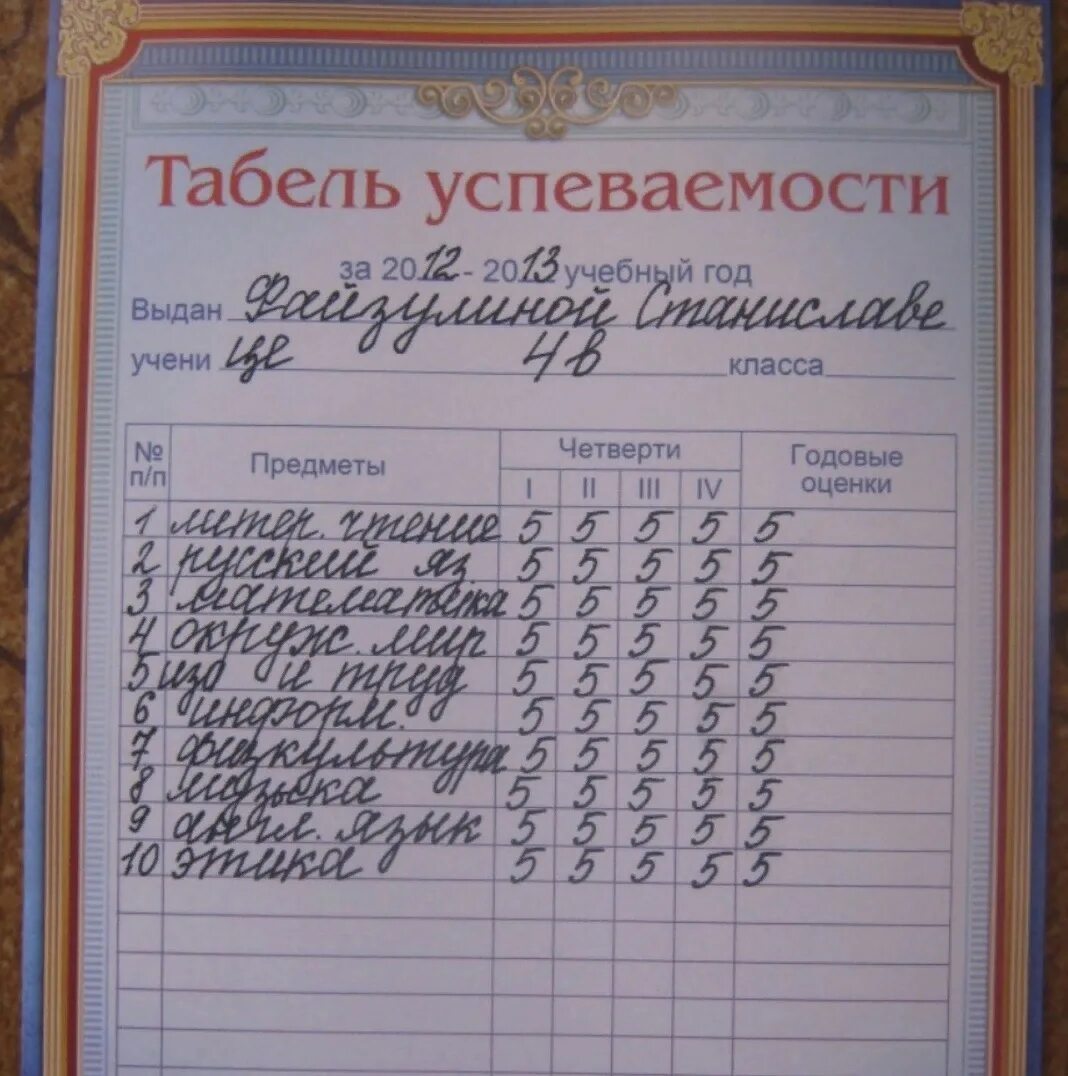 Табель успеваемости
за 2012 - 2013 учебный год
Выдан Файзулиной Станиславе
учени це 4в класса
№ п/п Предметы Четверти Годовые оценки
I II III IV
1 литер. чтение 5 5 5 5 5
2 русский яз 5 5 5 5 5
3 математика 5 5 5 5 5
4 окруж. мир 5 5 5 5 5
5 изо и труд 5 5 5 5 5
6 информ. 5 5 5 5 5
7 физкультура 5 5 5 5 5
8 музыка 5 5 5 5 5
9 англ. язык 5 5 5 5 5
10 этика 5 5 5 5 5